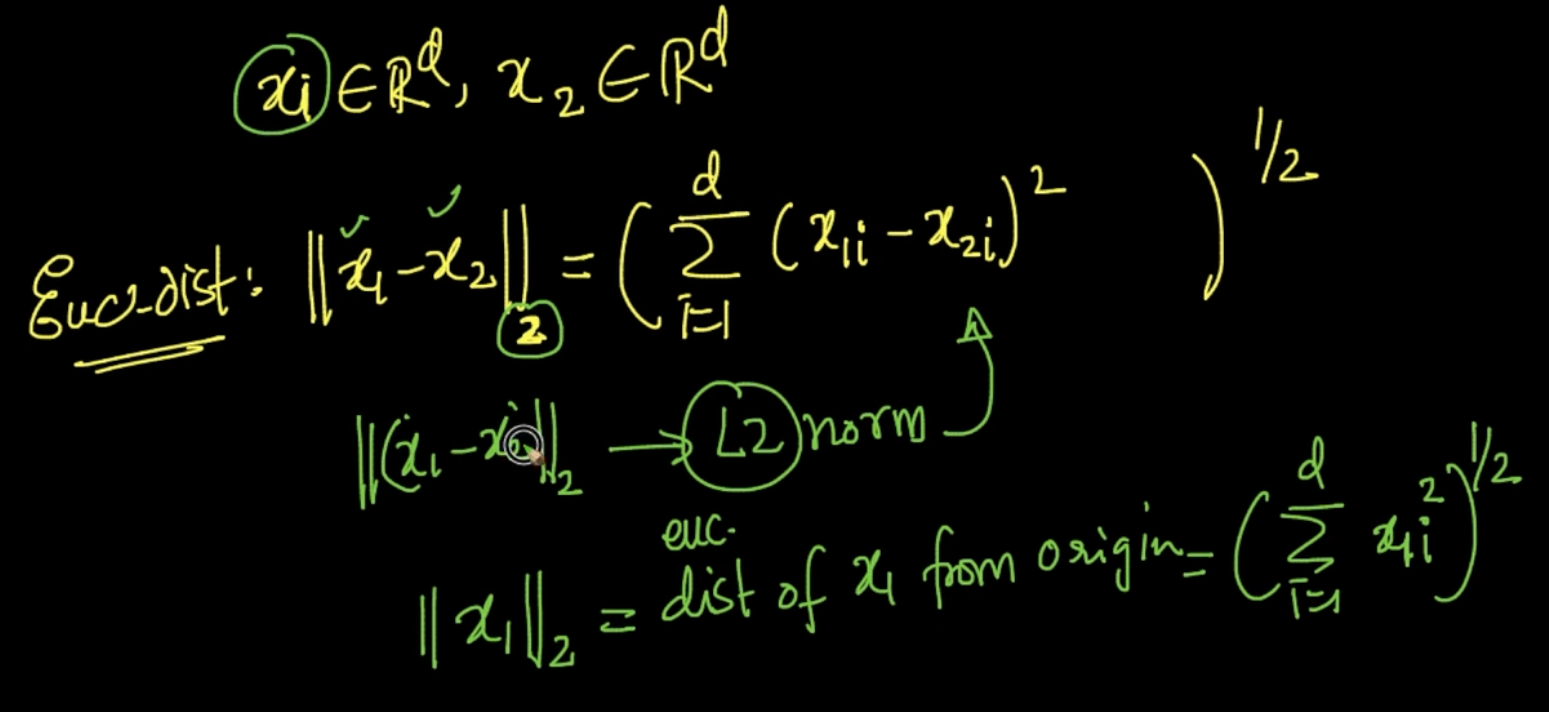 x₁ ∈ ℝᵈ, x₂ ∈ ℝᵈ
Euc-dist: ||x₁ - x₂||₂ = (∑ᵢ₌₁ᵈ (x₁ᵢ - x₂ᵢ)²)^1/2
||(x₁ - x₂||₂ → L2 norm
||x₁||₂ = euc. dist of x₁ from origin = (∑ᵢ₌₁ᵈ x₁ᵢ²)^1/2